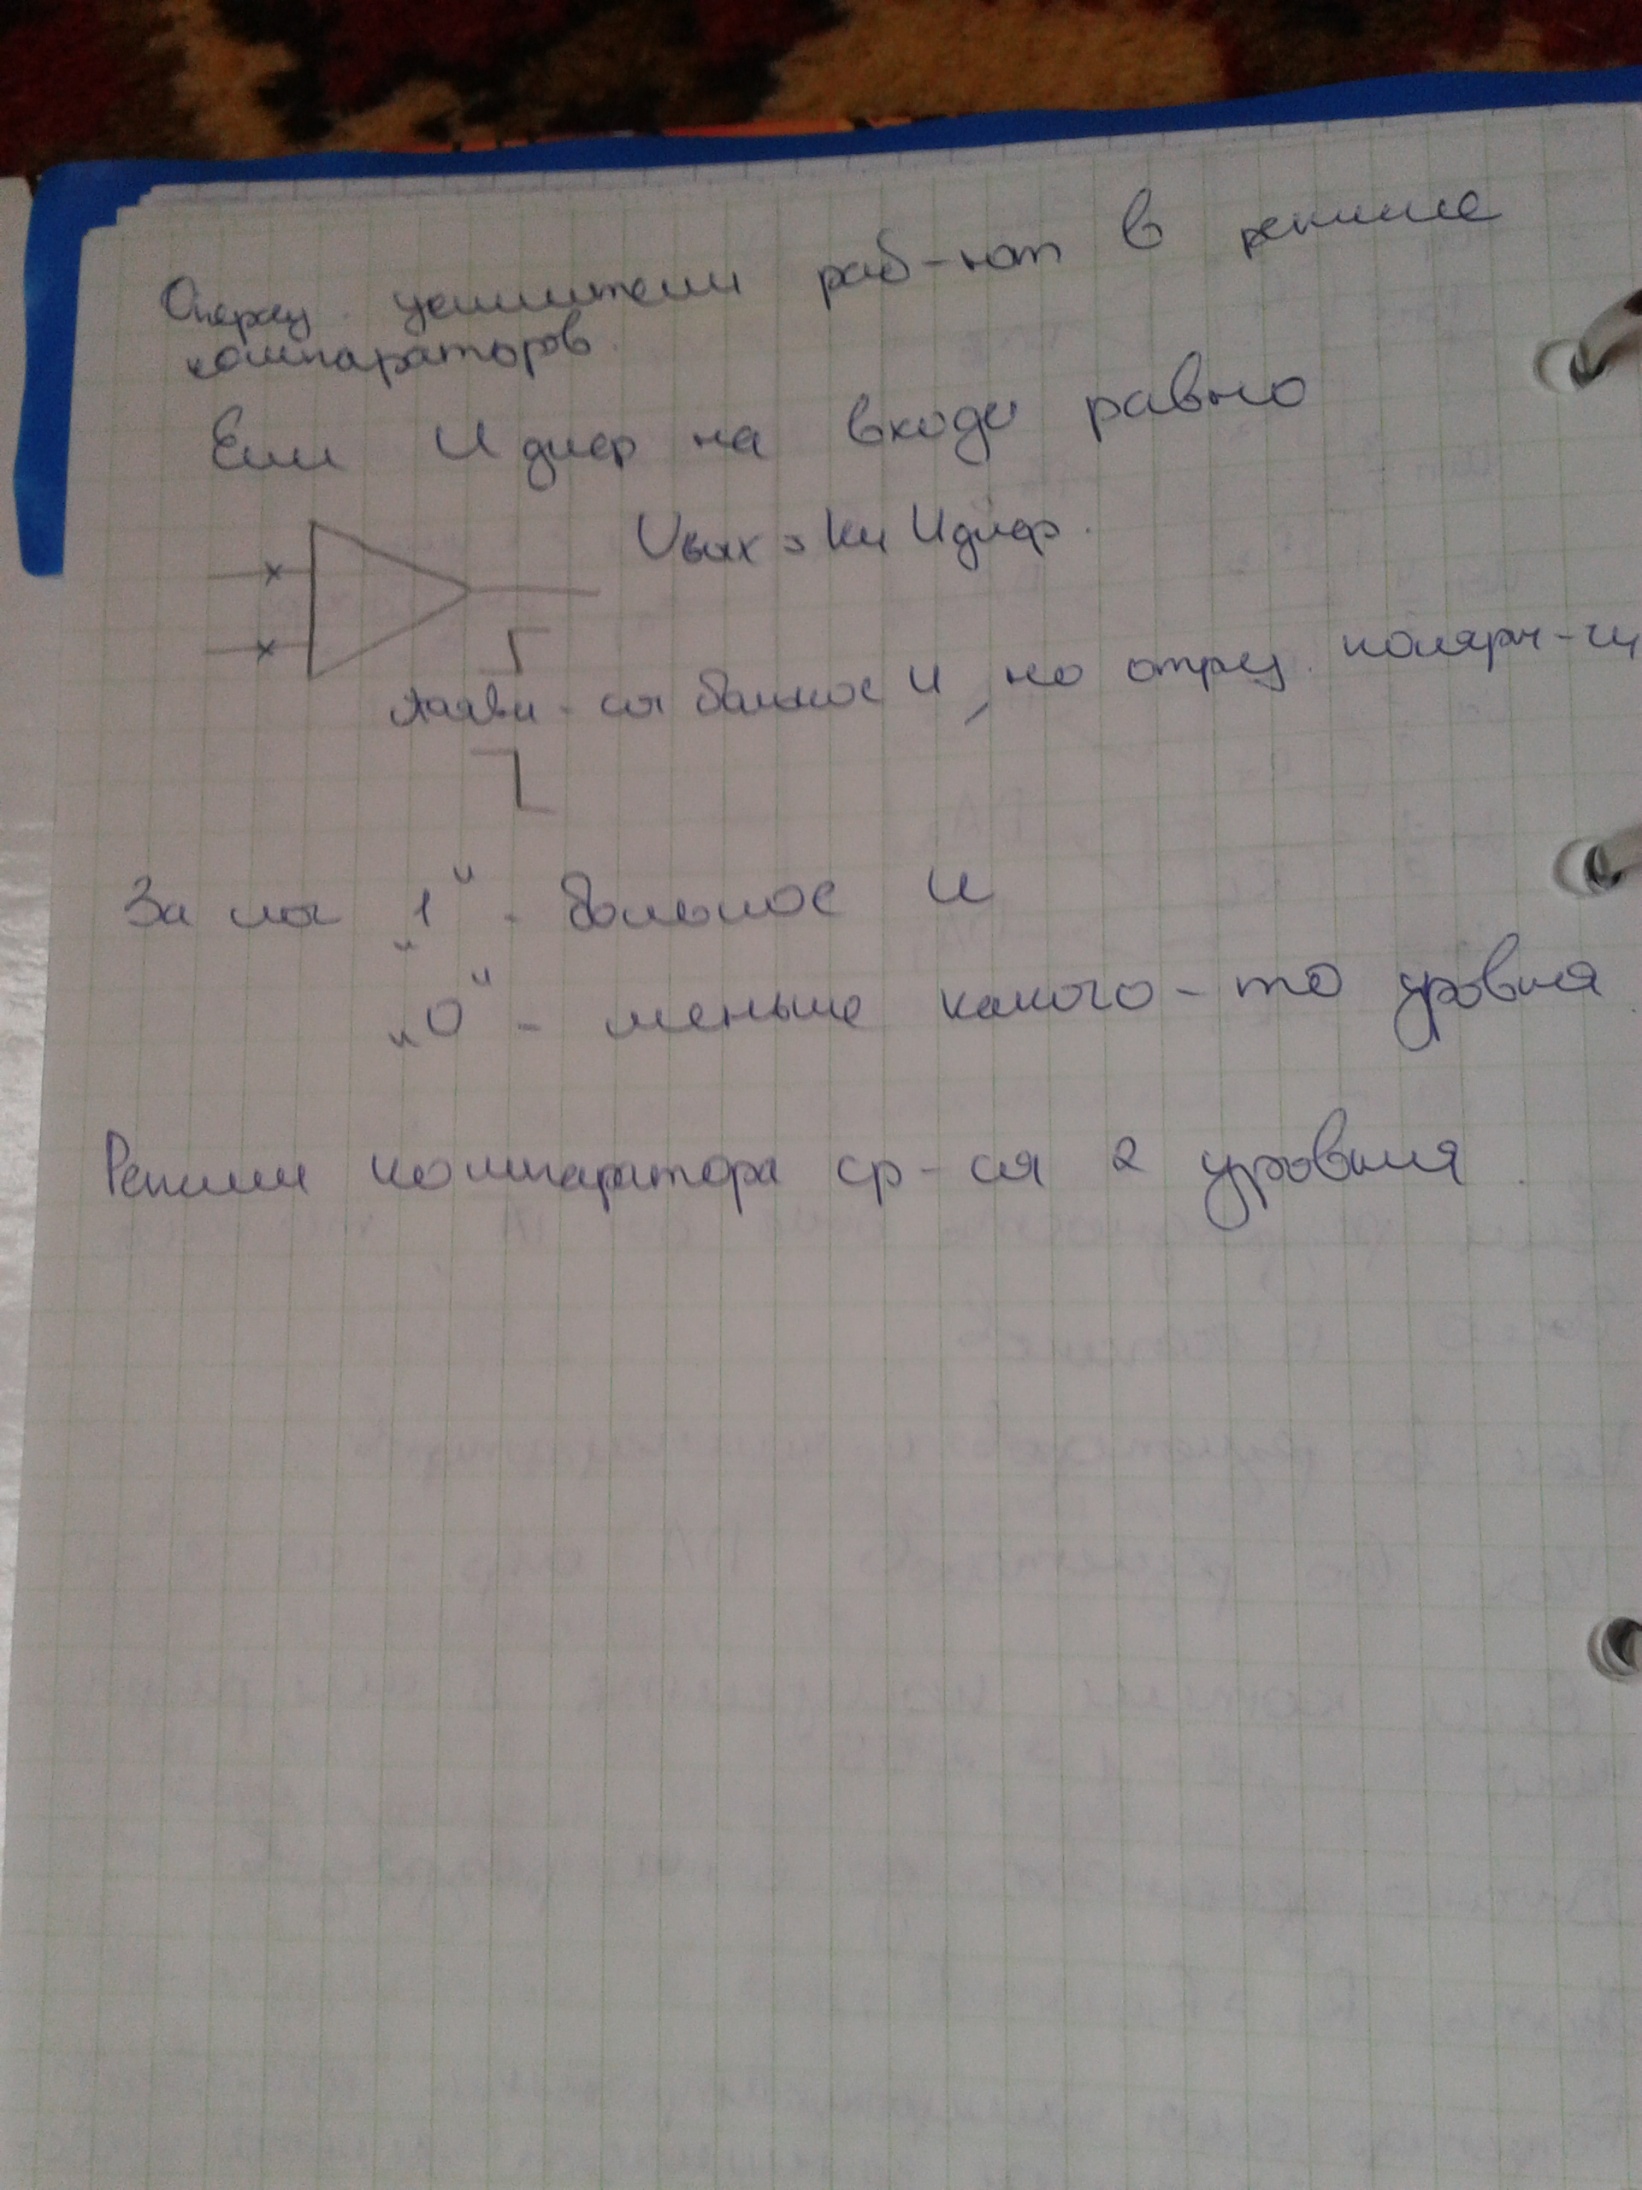 Операц. усилители раб-ют в режиме
компараторов.
Если U диф на входе равно
Uвых = Ku Uдиф.
появи-ся большое U, но отриц. полярн-ти
За лог "1" - большое U
"0" - меньше какого-то уровня.
Режим компаратора ср-ся 2 уровня.